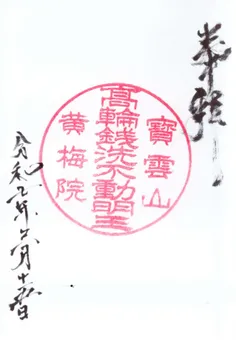 奉拝
寶雲山
高輪銭洗不動明王
黄梅院
令和元年六月十六日